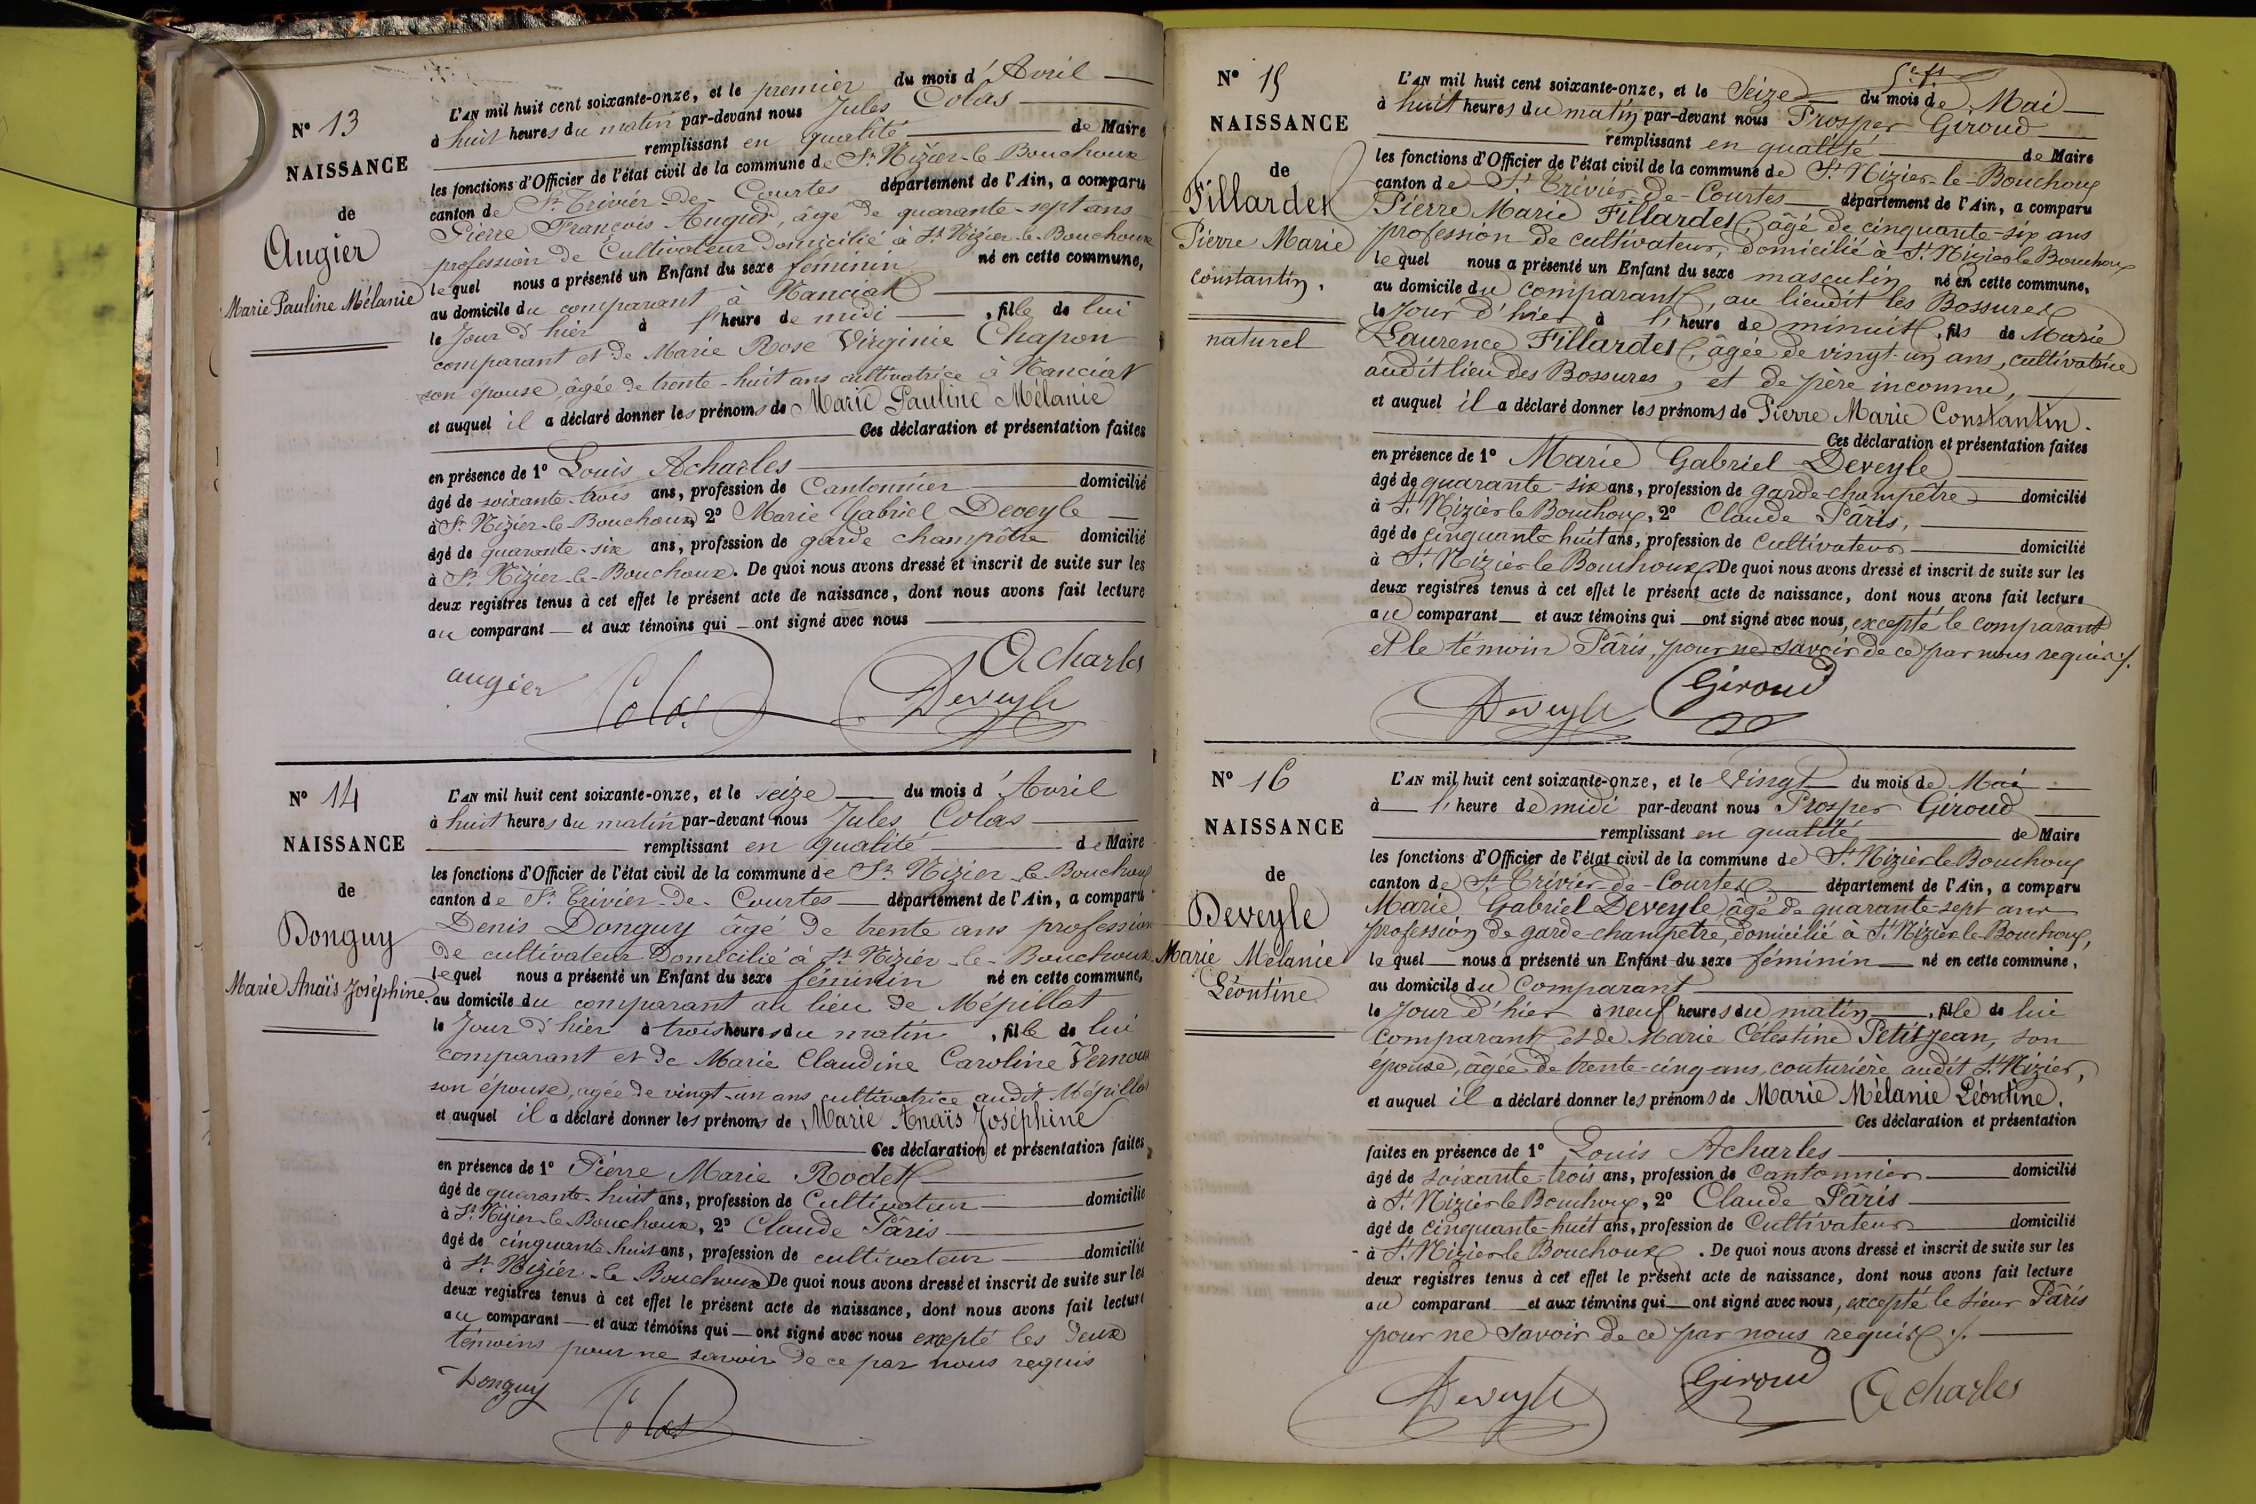 N° 13
NAISSANCE
de
Augier
Marie Pauline Mélanie
L'AN mil huit cent soixante-onze, et le premier du mois d'Avril
à huit heures du matin par-devant nous Jules Colas
remplissant en qualité de Maire
les fonctions d'Officier de l'état civil de la commune de St Nizier-le-Bouchoux
canton de St Trivier-de-Courtes département de l'Ain, a comparu
Pierre François Augier, âgé de quarante-sept ans
profession de Cultivateur domicilié à St Nizier-le-Bouchoux
lequel nous a présenté un Enfant du sexe féminin né en cette commune,
au domicile du comparant à Nanciat
le Jour d'hier à l'heure de midi, fille de lui
comparant et de Marie Rose Virginie Chapon
son épouse, âgée de trente-huit ans cultivatrice à Nanciat
et auquel il a déclaré donner les prénoms de Marie Pauline Mélanie
Ces déclaration et présentation faites
en présence de 1° Louis Acharles
âgé de soixante-trois ans, profession de Cantonnier domicilié
à St Nizier-le-Bouchoux, 2° Marie Gabriel Deveyle
âgé de quarante-six ans, profession de garde champêtre domicilié
à St Nizier-le-Bouchoux. De quoi nous avons dressé et inscrit de suite sur les
deux registres tenus à cet effet le présent acte de naissance, dont nous avons fait lecture
au comparant et aux témoins qui ont signé avec nous
augier Colas Acharles
Deveyle
N° 14
NAISSANCE
de
Donguy
Marie Anaïs Joséphine
L'AN mil huit cent soixante-onze, et le seize du mois d'Avril
à huit heures du matin par-devant nous Jules Colas
remplissant en qualité de Maire
les fonctions d'Officier de l'état civil de la commune de St Nizier-le-Bouchoux
canton de St Trivier-de-Courtes département de l'Ain, a comparu
Denis Donguy âgé de trente ans profession
de cultivateur Domicilié à St Nizier-le-Bouchoux
lequel nous a présenté un Enfant du sexe féminin né en cette commune,
au domicile du comparant au lieu de Mépillat
le Jour d'hier à trois heures du matin, fille de lui
comparant et de Marie Claudine Caroline Vernoux
son épouse, agée de vingt-un ans cultivatrice audit Mépillat
et auquel il a déclaré donner les prénoms de Marie Anaïs Joséphine
Ces déclaration et présentation faites
en présence de 1° Pierre Marie Rodet
âgé de quarante-huit ans, profession de Cultivateur domicilié
à St Nizier-le-Bouchoux, 2° Claude Pâris
âgé de cinquante huit ans, profession de cultivateur domicilié
à St Nizier-le Bouchoux De quoi nous avons dressé et inscrit de suite sur les
deux registres tenus à cet effet le présent acte de naissance, dont nous avons fait lecture
au comparant et aux témoins qui ont signé avec nous excepté les deux
témoins pour ne savoir de ce par nous requis
Donguy Colas
N° 15
NAISSANCE
de
Fillardet
Pierre Marie
Constantin.
naturel
L'AN mil huit cent soixante-onze, et le Seize du mois de Mai
à huit heures du matin par-devant nous Prosper Giroud
remplissant en qualité de Maire
les fonctions d'Officier de l'état civil de la commune de St Nizier-le-Bouchoux
canton de St Trivier-de-Courtes département de l'Ain, a comparu
Pierre Marie Fillardet, âgé de cinquante-six ans
profession de cultivateur, domicilié à St Nizier le Bouchoux
lequel nous a présenté un Enfant du sexe masculin né en cette commune,
au domicile du comparant, au lieudit les Bossures
le Jour d'hier à l'heure de minuit, fils de Marie
Laurence Fillardet, âgée de vingt-un ans, cultivatrice
audit lieu des Bossures, et de père inconnu,
et auquel il a déclaré donner les prénoms de Pierre Marie Constantin.
Ces déclaration et présentation faites
en présence de 1° Marie Gabriel Deveyle
âgé de quarante-six ans, profession de garde-champêtre domicilié
à St Nizier le Bouchoux, 2° Claude Pâris,
âgé de cinquante huit ans, profession de Cultivateur domicilié
à St Nizier le Bouchoux. De quoi nous avons dressé et inscrit de suite sur les
deux registres tenus à cet effet le présent acte de naissance, dont nous avons fait lecture
au comparant et aux témoins qui ont signé avec nous, excepté le comparant
et le témoin Pâris, pour ne savoir de ce par nous requis ./.
Deveyle Giroud
N° 16
NAISSANCE
de
Deveyle
Marie Mélanie
Léontine
L'AN mil huit cent soixante-onze, et le Vingt du mois de Mai
à l'heure de midi par-devant nous Prosper Giroud
remplissant en qualité de Maire
les fonctions d'Officier de l'état civil de la commune de St Nizier le Bouchoux
canton de St Trivier-de-Courtes département de l'Ain, a comparu
Marie Gabriel Deveyle âgé de quarante-sept ans
profession de garde-champêtre, domicilié à St Nizier le Bouchoux,
lequel nous a présenté un Enfant du sexe féminin né en cette commune,
au domicile du Comparant
le Jour d'hier à neuf heures du matin, fille de lui
Comparant et de Marie Célestine Petitjean, son
épouse, âgée de trente-cinq ans, couturière audit St Nizier,
et auquel il a déclaré donner les prénoms de Marie Mélanie Léontine.
Ces déclaration et présentation
faites en présence de 1° Louis Acharles
âgé de soixante trois ans, profession de Cantonnier domicilié
à St Nizier le Bouchoux, 2° Claude Pâris
âgé de cinquante-huit ans, profession de Cultivateur domicilié
à St Nizier le Bouchoux. De quoi nous avons dressé et inscrit de suite sur les
deux registres tenus à cet effet le présent acte de naissance, dont nous avons fait lecture
au comparant et aux témoins qui ont signé avec nous, excepté le sieur Pâris
pour ne savoir de ce par nous requis ./.
Deveyle Giroud Acharles